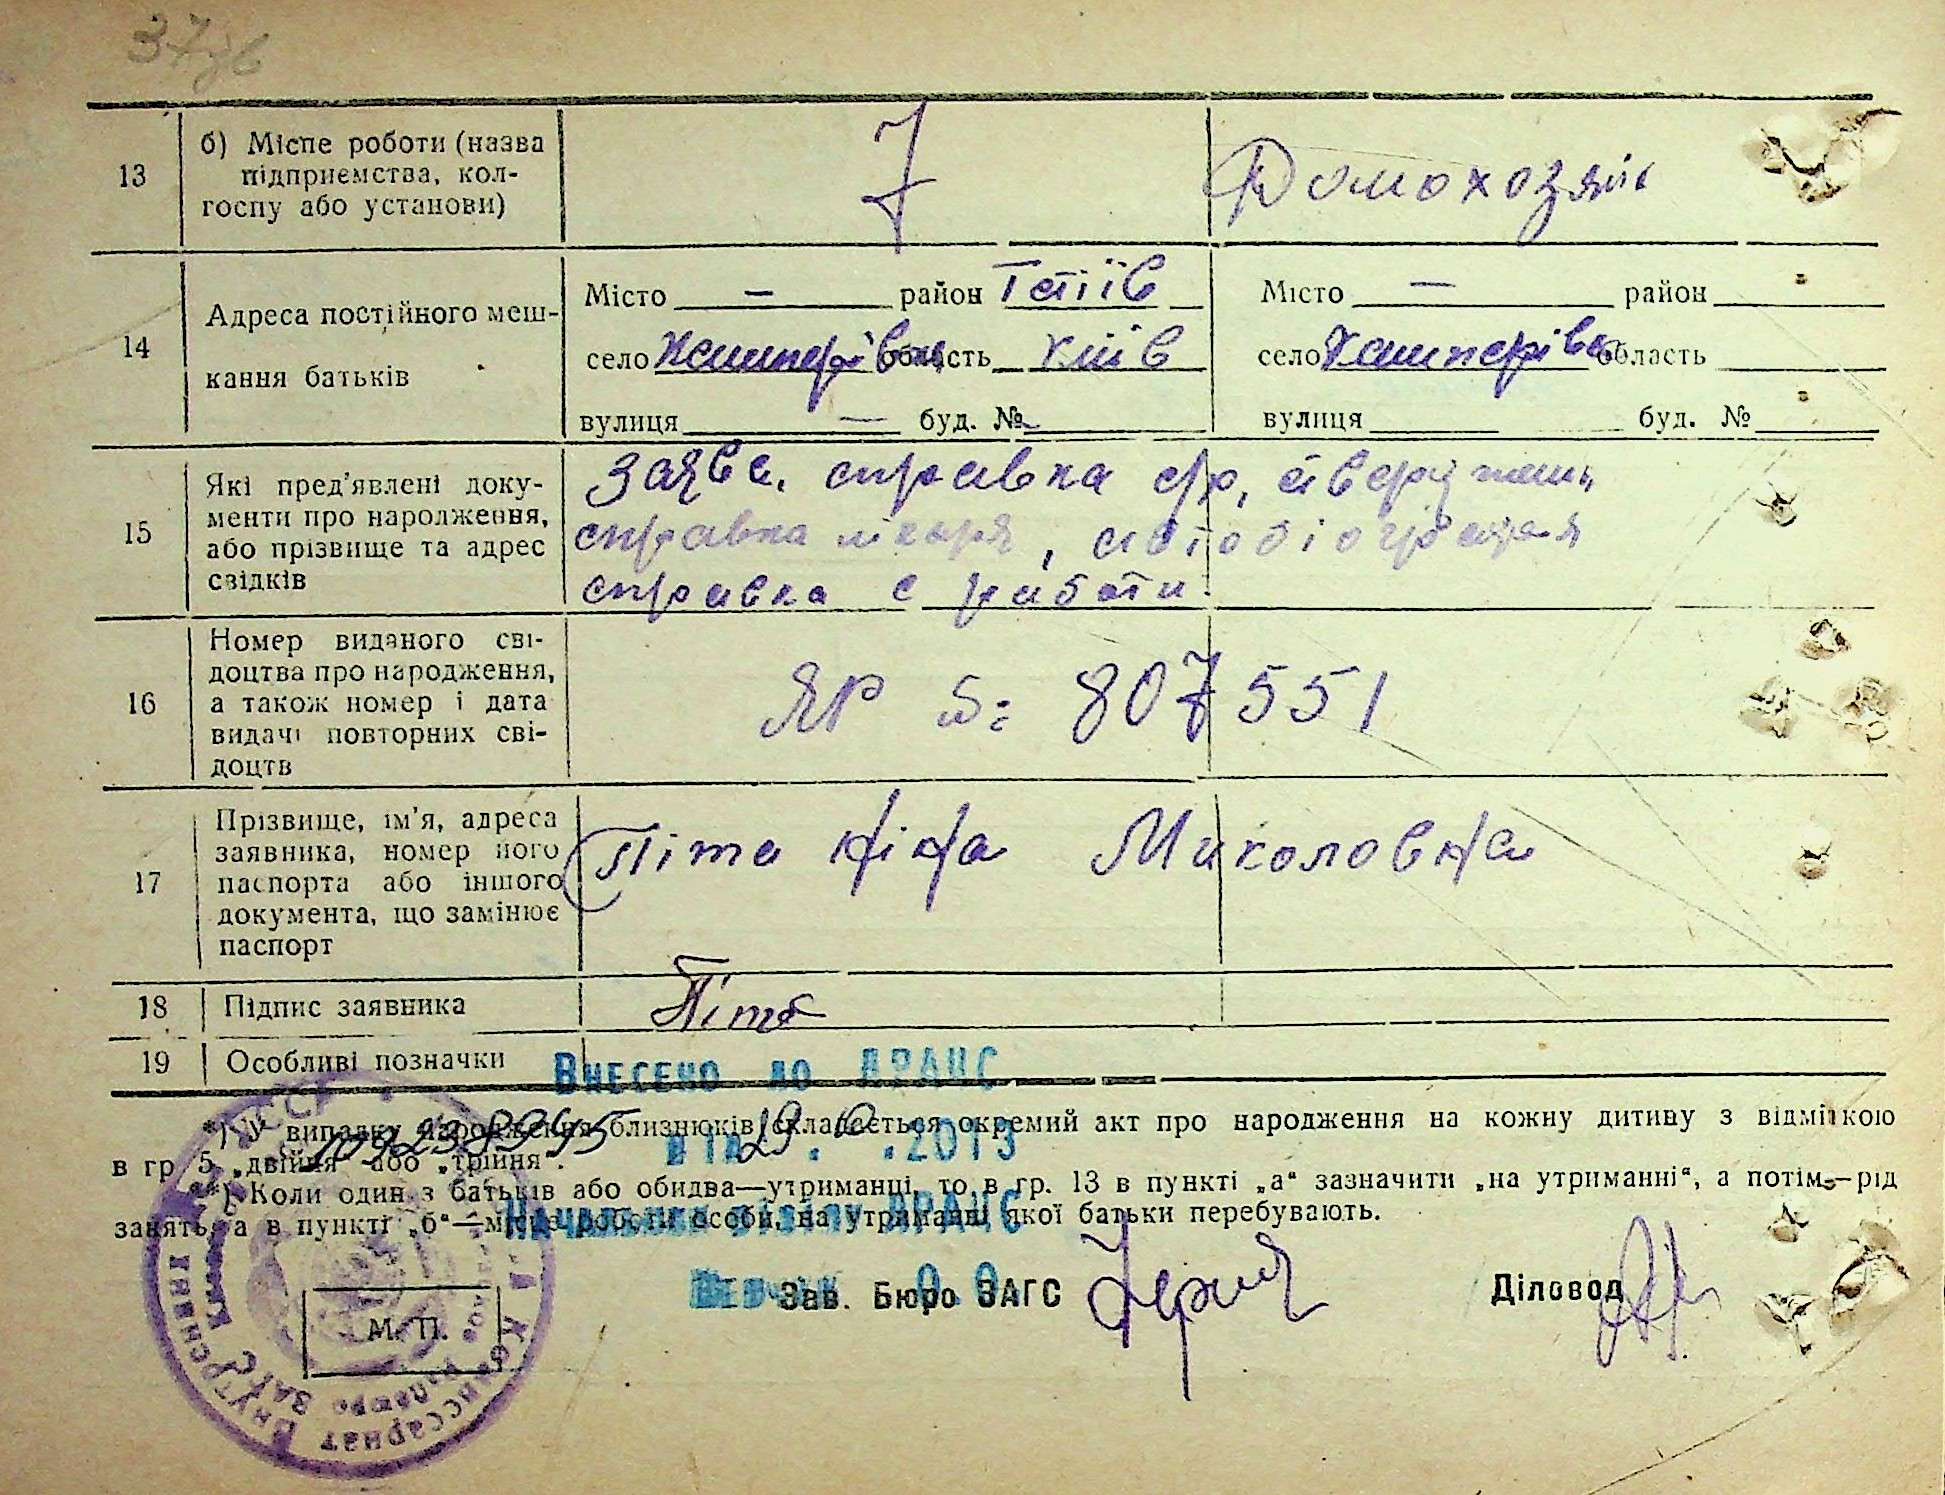 37
13
б) Місце роботи (назва
підприємства, кол-
госпу або установи)
7
Домохозяйк
14
Адреса постійного меш-
кання батьків
Місто — район Тетіїв
село Кашперівка область Київ
вулиця — буд. №
Місто — район
село Кашперівка область
вулиця буд. №
15
Які пред'явлені доку-
менти про народження,
або прізвище та адрес
свідків
заява, справка с/р,
справка лікаря, автобіографія
справка с работи
16
Номер виданого сві-
доцтва про народження,
а також номер і дата
видачі повторних сві-
доцтв
ЯР 807551
17
Прізвище, ім'я, адреса
заявника, номер його
паспорта або іншого
документа, що замінює
паспорт
Піта Ніна Миколовна
18 Підпис заявника
Піта
19 Особливі позначки
Внесено до ДРАЦС
*) У випадку народження близнюків складається окремий акт про народження на кожну дитину з відміткою
в гр. 5 „двійня" або „трійня".
**) Коли один з батьків або обидва—утриманці, то в гр. 13 в пункті „а" зазначити „на утриманні", а потім—рід
занять, а в пункті „б"—місце роботи особи, на утриманні якої батьки перебувають.
Начальник відділу ДРАЦС
М. П.
Зав. Бюро ЗАГС
Діловод